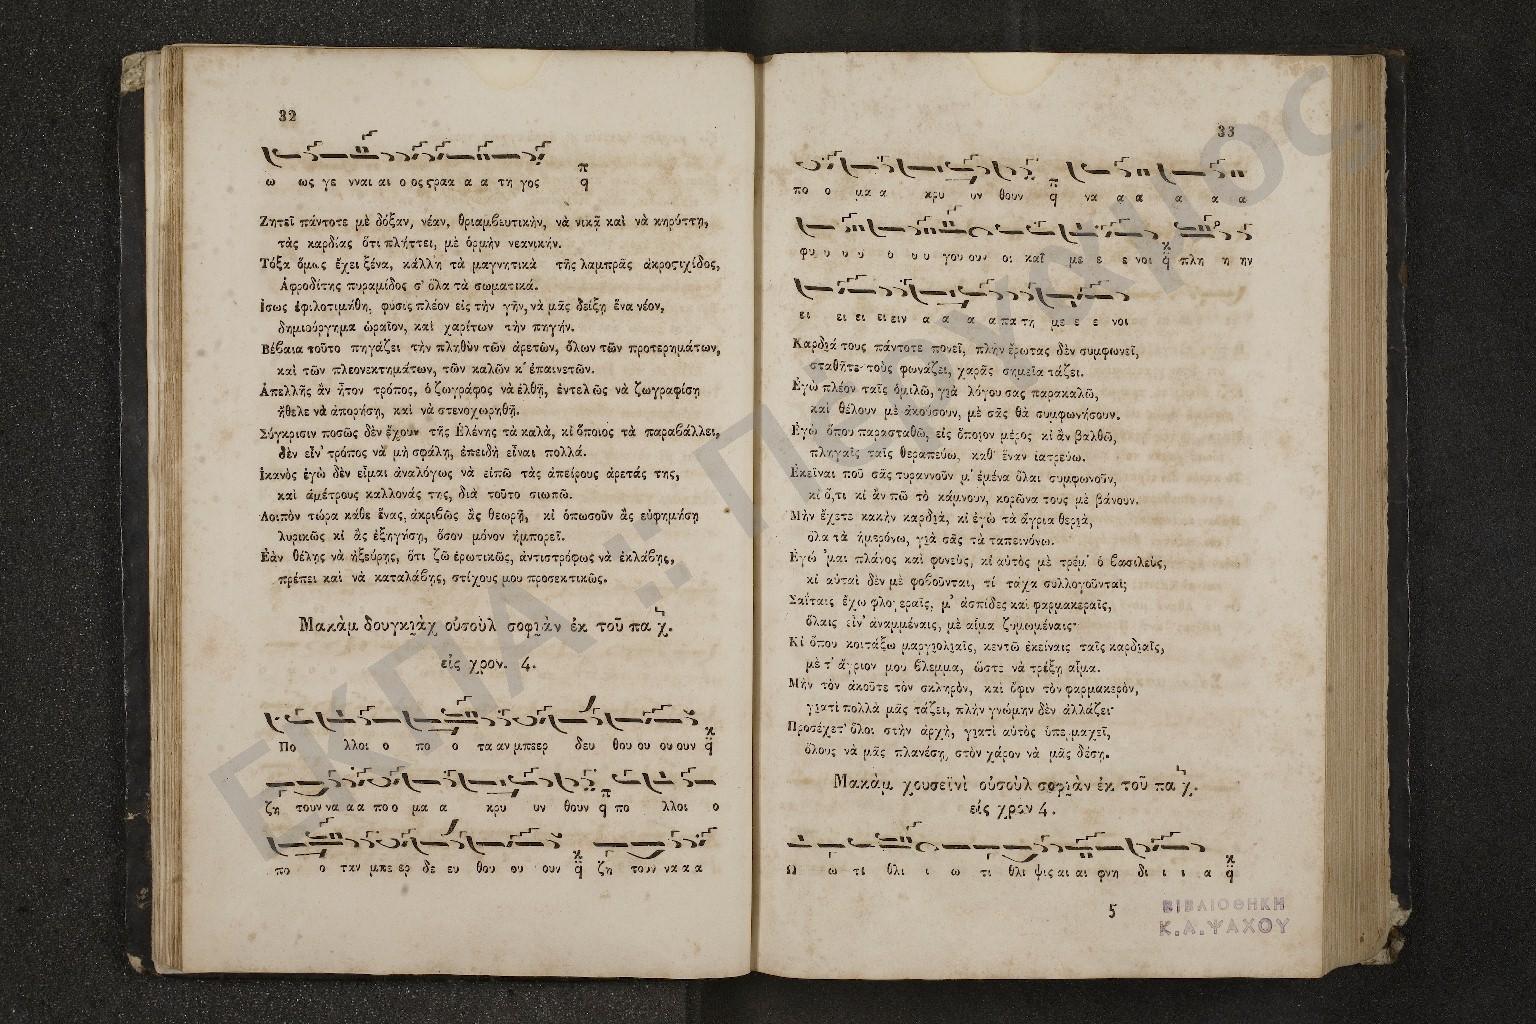 32
ω ως γε νναι αι ο ος ϛραα α α τη γος π q
Ζητεῖ πάντοτε μὲ δόξαν, νέαν, θριαμβευτικὴν, νὰ νικᾷ καὶ νὰ κηρύττῃ,
τὰς καρδίας ὅτι πλήττει, μὲ ὁρμὴν νεανικήν.
Τόξα ὅμως ἔχει ξένα, κάλλη τὰ μαγνητικὰ τῆς λαμπρᾶς ἀκροϛιχίδος,
Ἀφροδίτης πυραμίδος σ' ὅλα τὰ σωματικά.
Ἴσως ἐφιλοτιμήθη, φύσις πλέον εἰς τὴν γῆν, νὰ μᾶς δείξῃ ἕνα νέον,
δημιούργημα ὡραῖον, καὶ χαρίτων τὴν πηγήν.
Βέβαια τοῦτο πηγάζει τὴν πληθὺν τῶν ἀρετῶν, ὅλων τῶν προτερημάτων,
καὶ τῶν πλεονεκτημάτων, τῶν καλῶν κ' ἐπαινετῶν.
Ἀπελλῆς ἂν ἦτον τρόπος, ὁ ζωγράφος νὰ ἐλθῇ, ἐντελῶς νὰ ζωγραφίσῃ
ἤθελε νὰ ἀπορήσῃ, καὶ νὰ στενοχωρηθῇ.
Σύγκρισιν ποσῶς δὲν ἔχουν τῆς Ἑλένης τὰ καλὰ, κι ὅποιος τὰ παραβάλλει,
δὲν εἶν' τρόπος νὰ μὴ σφάλῃ, ἐπειδὴ εἶναι πολλά.
Ἱκανὸς ἐγὼ δὲν εἶμαι ἀναλόγως νὰ εἰπῶ τὰς ἀπείρους ἀρετάς της,
καὶ ἀμέτρους καλλονάς της, διὰ τοῦτο σιωπῶ.
Λοιπὸν τώρα κάθε ἕνας, ἀκριβῶς ἂς θεωρῇ, κι ὁπωσοῦν ἂς εὐφημήσῃ
λυρικῶς κι ἂς ἐξηγήσῃ, ὅσον μόνον ἠμπορεῖ.
Ἐὰν θέλῃς νὰ ἠξεύρῃς, ὅτι ζῶ ἐρωτικῶς, ἀντιστρόφως νὰ ἐκλάβῃς,
πρέπει καὶ νὰ καταλάβῃς, στίχους μου προσεκτικῶς.
Μακὰμ δουγκιὰχ οὐσοὺλ σοφιὰν ἐκ τοῦ πα ἦχ.
εἰς χρον. 4.
Πο λλοι ο πο ο τα αν μπεερ δευ θου ου ου ουν q
ζη τουν να α α πο ο μα α κρυ υν θουν q πο λλοι ο
πο ο ταν μπε ερ δε ευ θου ου ουν q ζη τουν να α α
33
πο ο μα α κρυ υν θουν q να α α α α α
φυ υ υ υ υ υ υ γου ουν οι καῖ με ε ε νοι q πλη η ην
ει ει ει ει ειν α α α α πα τη με ε ε νοι
Καρδιά τους πάντοτε πονεῖ, πλὴν ἔρωτας δὲν συμφωνεῖ,
σταθῆτε τοὺς φωνάζει, χαρᾶς σημεῖα τάζει.
Ἐγὼ πλέον ταῖς ὁμιλῶ, γιὰ λόγου σας παρακαλῶ,
καὶ θέλουν μὲ ἀκούσουν, μὲ σᾶς θὰ συμφωνήσουν.
Ἐγὼ ὅπου παρασταθῶ, εἰς ὅποιον μέρος κι ἂν βαλθῶ,
πληγαῖς ταῖς θεραπεύω, καθ' ἕναν ἰατρεύω.
Ἐκεῖναι ποῦ σᾶς τυραννοῦν μ' ἐμένα ὅλαι συμφωνοῦν,
κι ὅ,τι κι ἂν πῶ τὸ κάμνουν, κορῶνα τους μὲ βάνουν.
Μὴν ἔχετε κακὴν καρδιὰ, κι ἐγὼ τὰ ἄγρια θεριὰ,
ὅλα τὰ ἡμερόνω, γιὰ σᾶς τὰ ταπεινόνω.
Ἐγώ 'μαι πλάνος καὶ φονεὺς, κι αὐτὸς μὲ τρέμ' ὁ βασιλεὺς,
κι αὐταὶ δὲν μὲ φοβοῦνται, τί τάχα συλλογοῦνται;
Σαΐταις ἔχω φλογεραῖς, μ' ἀσπίδες καὶ φαρμακεραῖς,
ὅλαις εἶν' ἀναμμέναις, μὲ αἷμα ζυμωμέναις·
Κι ὅπου κοιτάξω μαργιολιαῖς, κεντῶ ἐκείναις ταῖς καρδιαῖς,
μὲ τ' ἄγριον μου βλέμμα, ὥστε νὰ τρέξῃ αἷμα.
Μὴν τὸν ἀκοῦτε τὸν σκληρὸν, καὶ ὄφιν τὸν φαρμακερὸν,
γιατὶ πολλὰ μᾶς τάζει, πλὴν γνώμην δὲν ἀλλάζει·
Προσέχετ' ὅλοι στὴν ἀρχὴ, γιατὶ αὐτὸς ὑπερμαχεῖ,
ὅλους νὰ μᾶς πλανέσῃ, στὸν χάρον νὰ μᾶς δέσῃ.
Μακὰμ χουσεϊνὶ οὐσοὺλ σοφιὰν ἐκ τοῦ πα ἦχ.
εἰς χρον 4.
Ω ω τι θλι ι ω τι θλι ψις αι αι φνη δι ι ι α q
5
ΒΙΒΛΙΟΘΗΚΗ
Κ.Α.ΨΑΧΟΥ